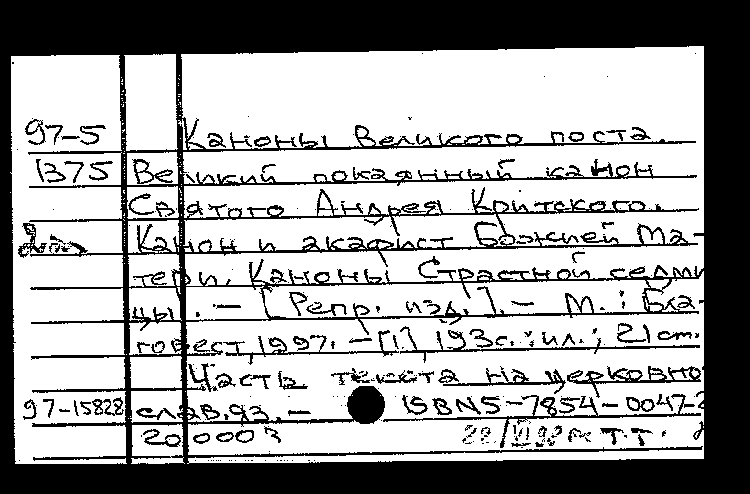 97-5 Каноны Великого поста.
1375 Великий покаянный канон
Святого Андрея Критского.
Канон и акафист Божией Ма-
тери. Каноны Страстной седми
цы. - [Репр. изд.]. - М.: Бла-
говест, 1997. - [1], 193с.: ил.; 21 cm.
Часть текста на церковно
97-15828 слав.яз. - ISBN5-7854-0047-2
20000э Т.Т.